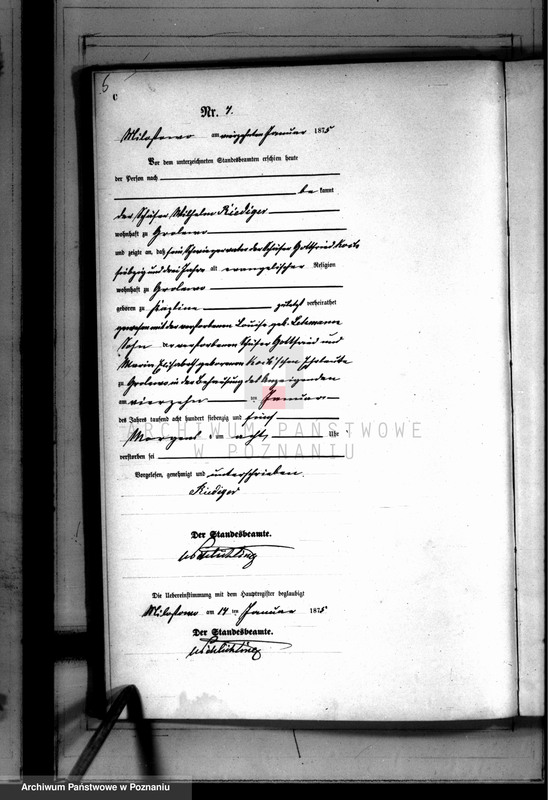 5
C
Nr. 7.
Milostowo am vierzehnten Januar 1875
Vor dem unterzeichneten Standesbeamten erschien heute
der Person nach
bekannt
der Schäfer Wilhelm Riediger
wohnhaft zu Grolewo
und zeigte an, daß sein Schwiegervater der Schäfer Gottfried
siebzig und drei Jahre alt evangelischer Religion
wohnhaft zu Grolewo
geboren zu zuletzt verheirathet
gewesen mit der verstorbenen Louise geb. Lehmann
Sohn der verstorbenen Schäfer Gottfried und
Maria Elisabeth geborenen Eheleute
zu Grolewo in der Behausung des Anzeigenden
am vierzehnten ten Januar
des Jahres tausend acht hundert siebenzig und fünf
Morgens um acht Uhr
verstorben sei
Vorgelesen, genehmigt und unterschrieben.
Riediger
Der Standesbeamte.
Die Uebereinstimmung mit dem Hauptregister beglaubigt
Milostowo am 14 ten Januar 1875
Der Standesbeamte.
ARCHIWUM PAŃSTWOWE
W POZNANIU
Archiwum Państwowe w Poznaniu